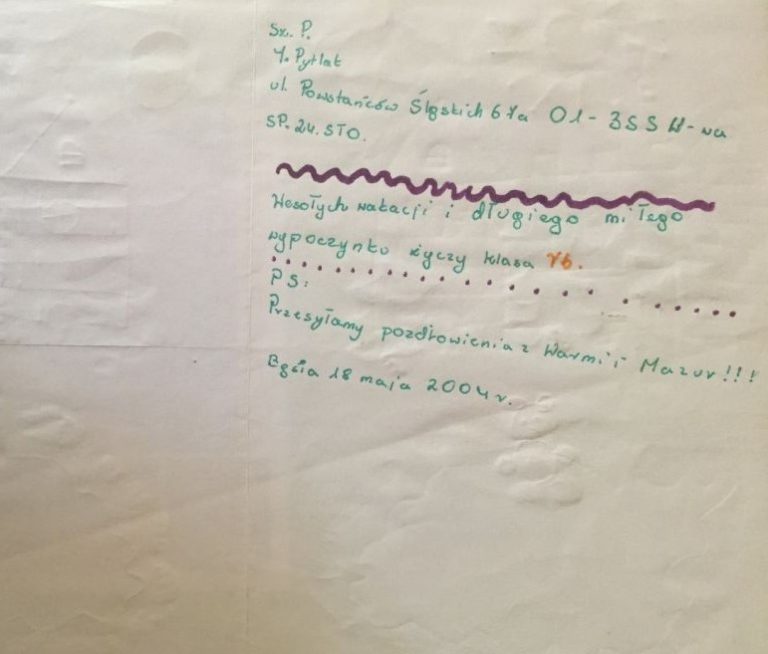 Sz. P.
Y. Pytlat
ul. Powstańców Śląskich 67a 01-355 W-wa
SP. 24. STO.
Wesołych wakacji i długiego miłego
wypoczynku życzy klasa Vb.
PS:
Przesyłamy pozdrowienia z Warmii i Mazur!!!
18 maja 2004 r.